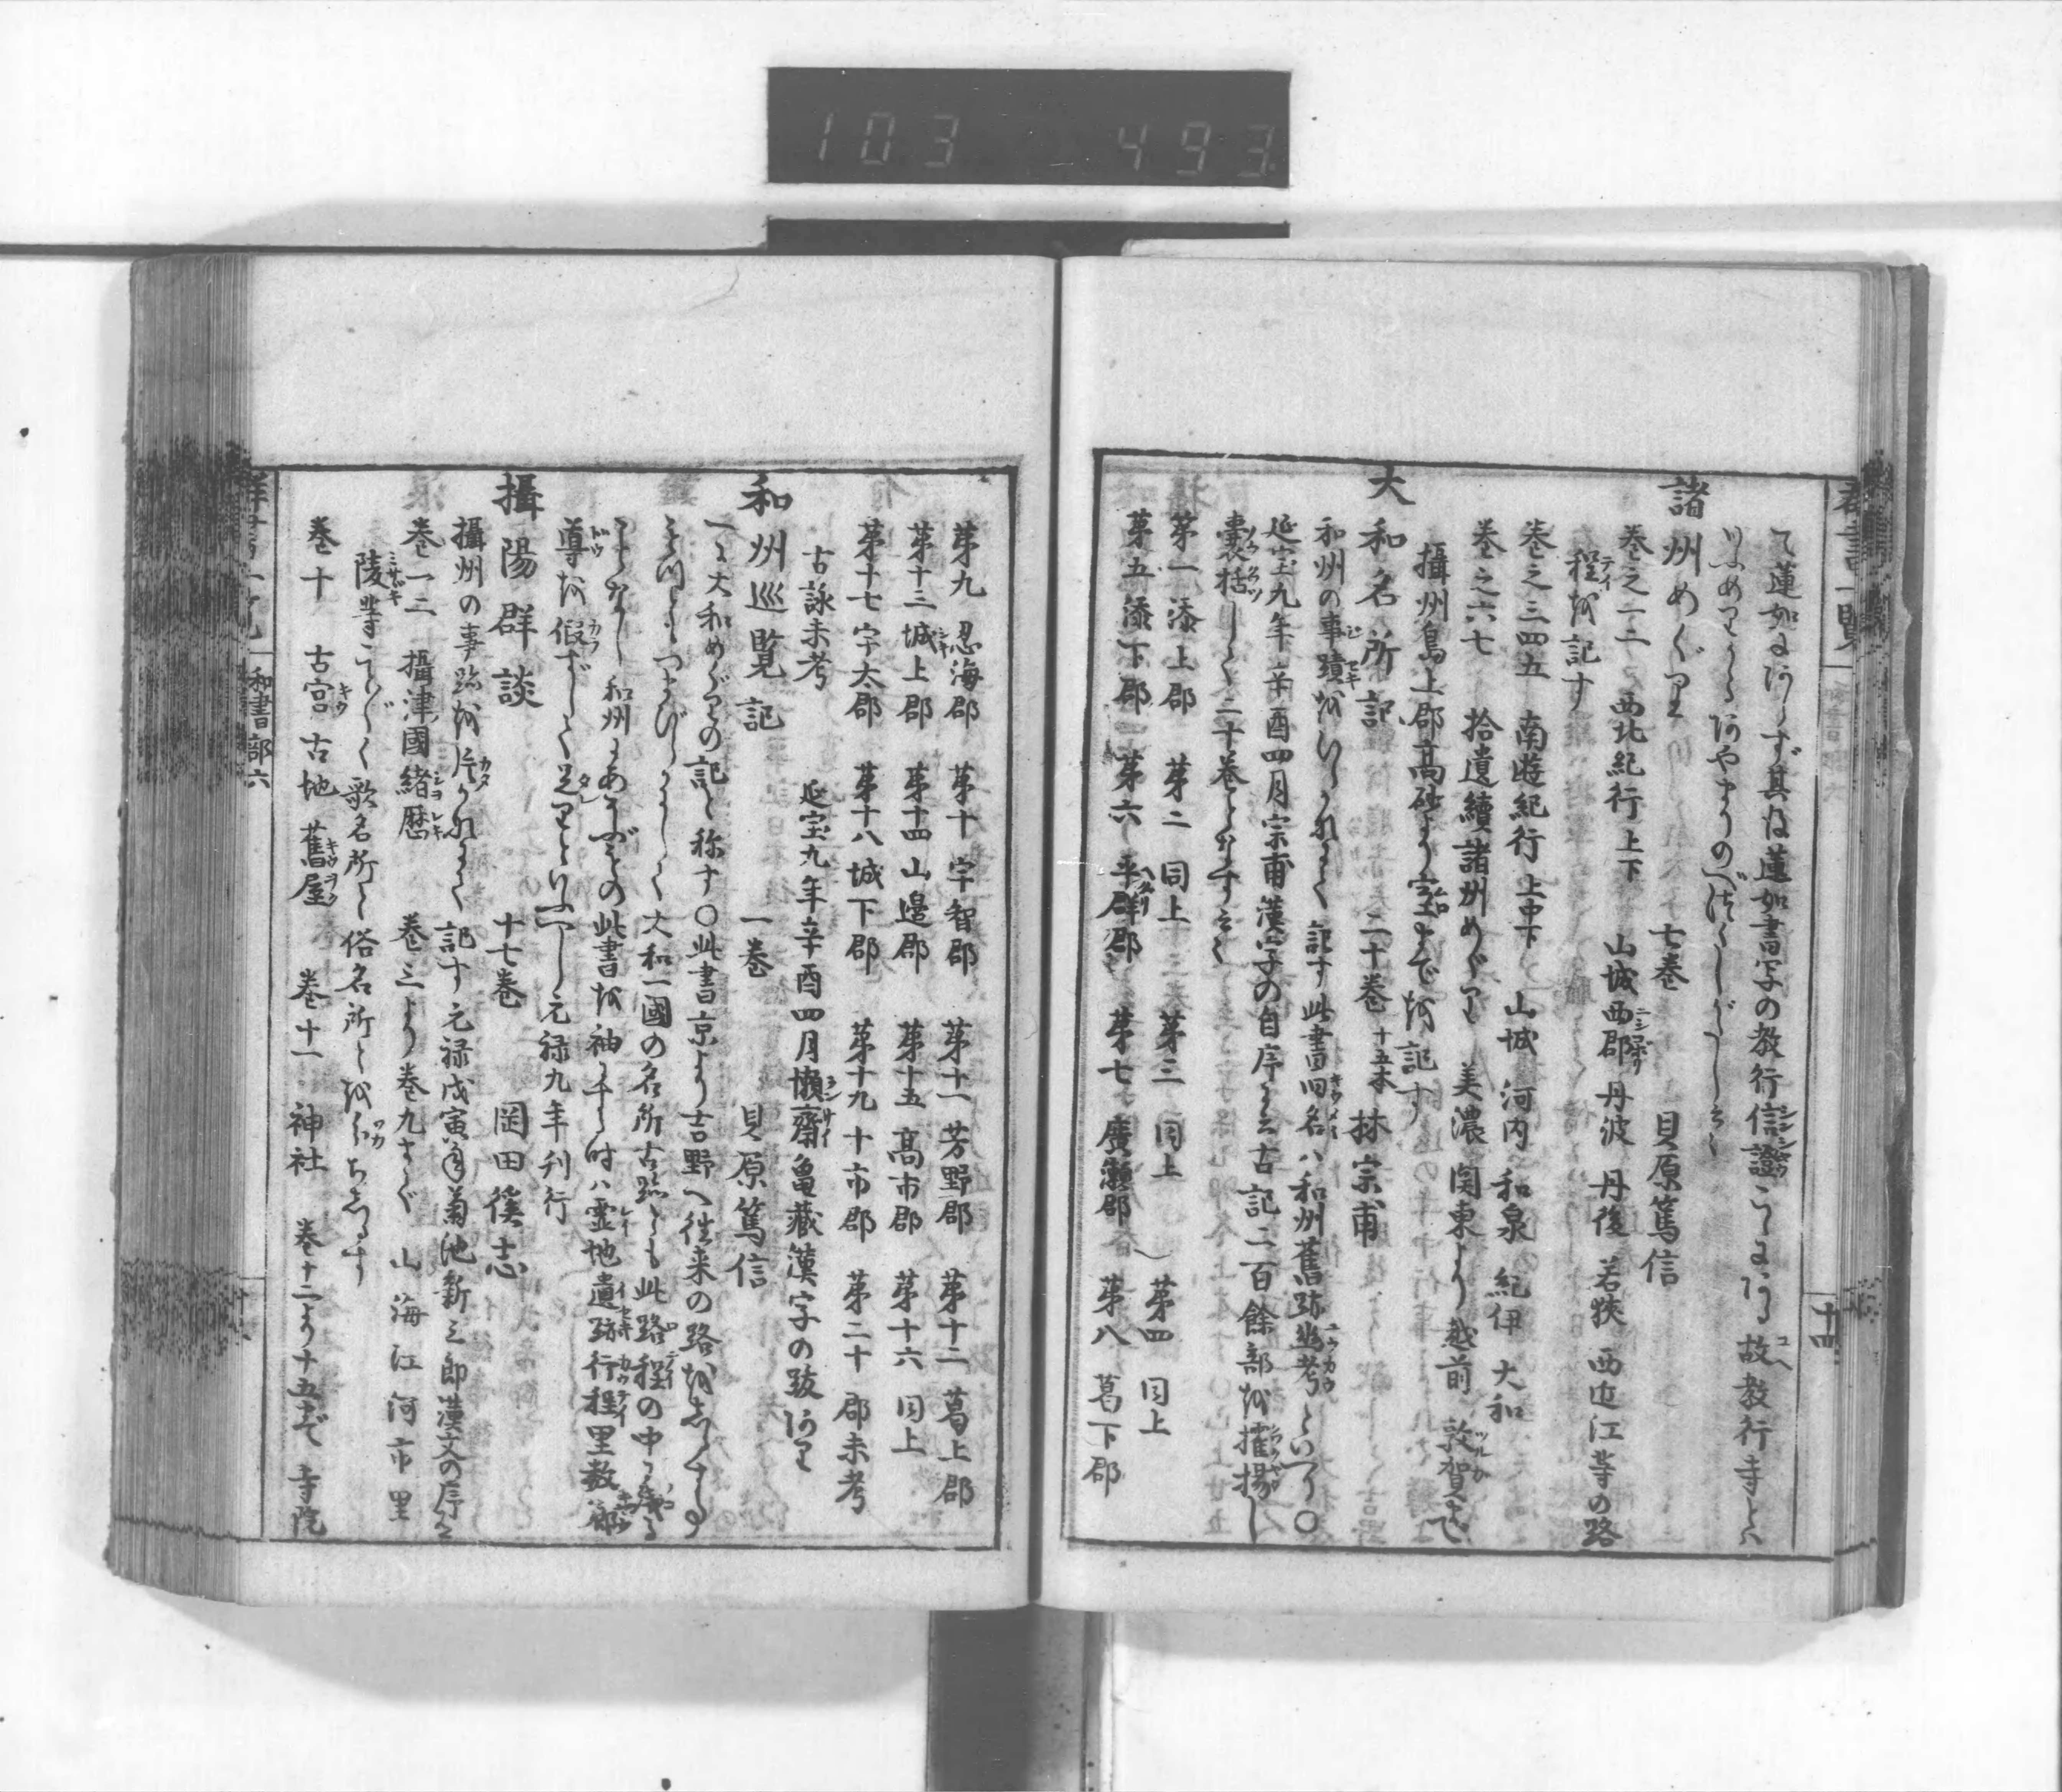 103 493
群書一覧
十四
て蓮如にあらず其は蓮如書写の教行信證こゝにあり故教行寺とは
いふめり
諸州めぐり 七巻 貝原篤信
巻之一二 西北紀行上下 山城西郡 丹波 丹後 若狭 西近江等の路
程を記す
巻之三四五 南遊紀行上中下 山城 河内 和泉 紀伊 大和
巻之六七 拾遺續諸州めぐり 美濃 関東より越前 敦賀まで
攝州島上郡高砂より室までを記す
大和名所記 二十巻 十五本 林宗甫
和州の事蹟を 記す此書旧名ハ和州舊跡幽考といへり〇
延宝九年辛酉四月宗甫漢字の自序に云古記二百餘部を擢揚し
嚢括して二十巻となす云々
第一添上郡 第二同上 第三同上 第四同上
第五添下郡 第六平群郡 第七廣瀬郡 第八葛下郡
第九忍海郡 第十宇智郡 第十一芳野郡 第十二葛上郡
第十三城上郡 第十四山邉郡 第十五高市郡 第十六同上
第十七宇太郡 第十八城下郡 第十九十市郡 第二十郡未考
古詠未考 延宝九年辛酉四月懶齋亀蔵漢字の跋あり
和州巡覧記 一巻 貝原篤信
一に大和めぐりの記と称す〇此書京より吉野へ往来の路をしるす
大和一國の名所古跡も此路程の中に
和州にあそぶもの此書を袖にする時ハ霊地遺跡行程里数
導を假ずして足りといふべし元禄九年刊行
攝陽群談 十七巻 岡田徯志
攝州の事跡を 記す元禄戊寅年菊池新三郎漢文の序
巻一二 攝津國緒暦 巻三より巻九まで 山海江河市里
陵等 歌名所と俗名所とを分ちしるす
巻十 古宮古地舊屋 巻十一 神社 巻十二より十五まで 寺院
群書一覧 和書部六